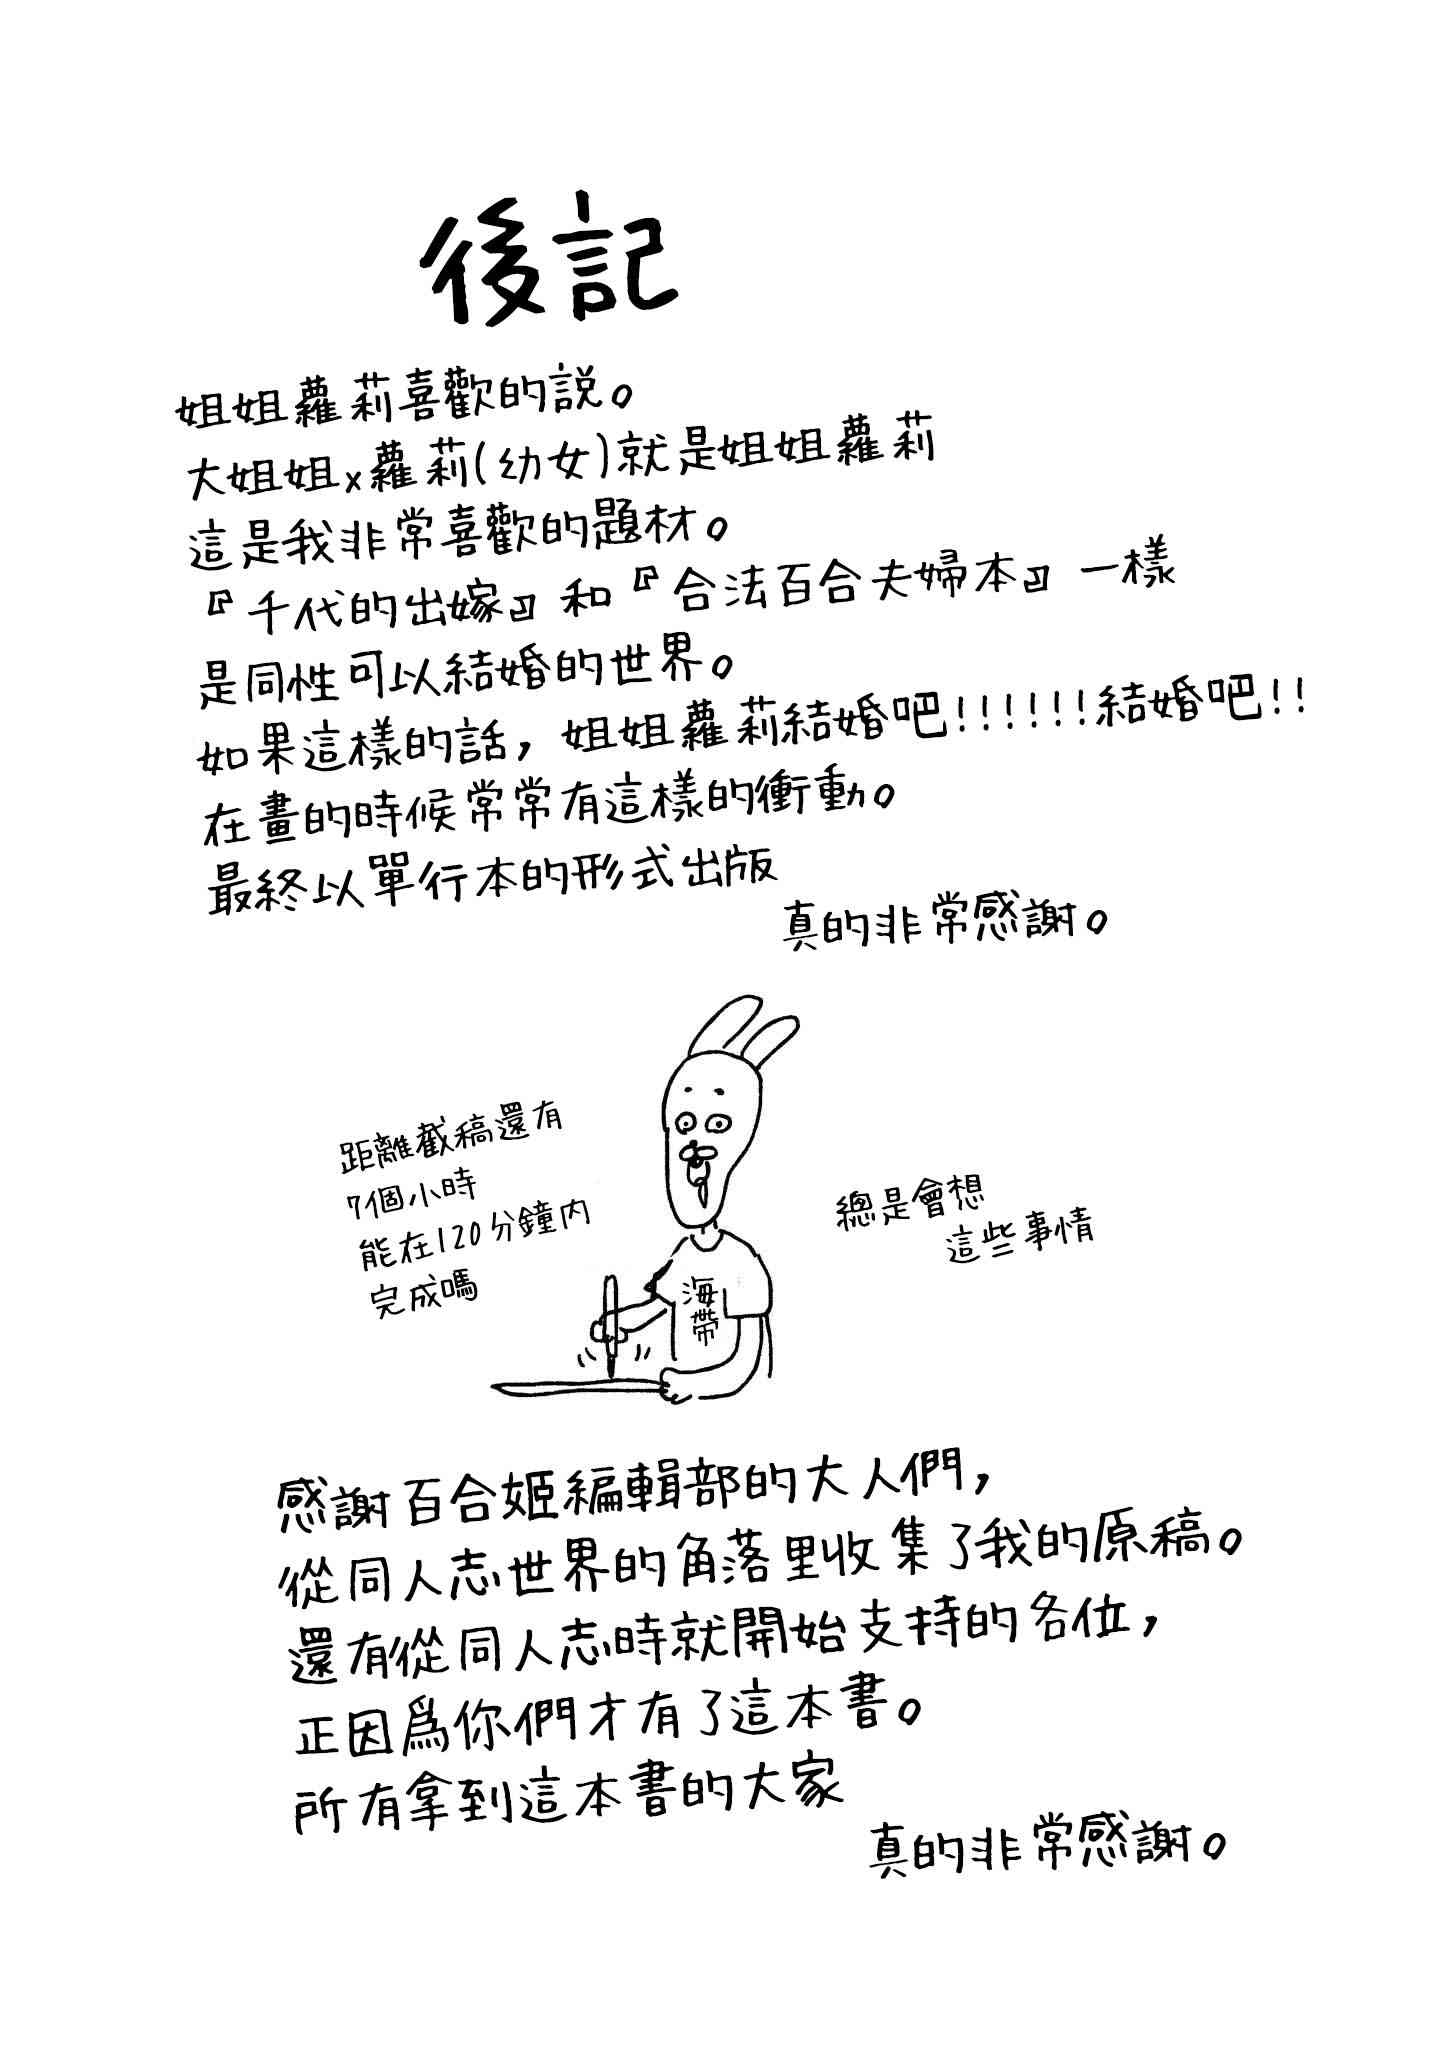 後記
姐姐蘿莉喜歡的説。
大姐姐x蘿莉(幼女)就是姐姐蘿莉
這是我非常喜歡的題材。
『千代的出嫁』和『合法百合夫婦本』一樣
是同性可以結婚的世界。
如果這樣的話，姐姐蘿莉結婚吧!!!!!!結婚吧!!
在畫的時候常常有這樣的衝動。
最終以單行本的形式出版
真的非常感謝。
距離截稿還有
7個小時
能在120分鐘内
完成嗎
總是會想
這些事情
海帶
感謝百合姬編輯部的大人們，
從同人志世界的角落里收集了我的原稿。
還有從同人志時就開始支持的各位，
正因爲你們才有了這本書。
所有拿到這本書的大家
真的非常感謝。